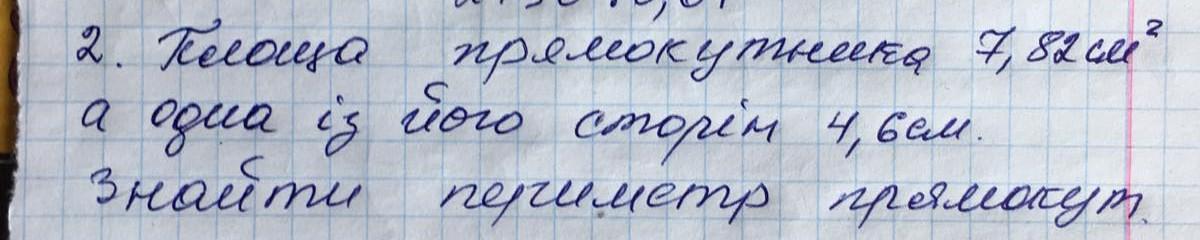 2. Площа прямокутника 7,82 см²
а одна із його сторін 4,6 см.
Знайти периметр прямокут.